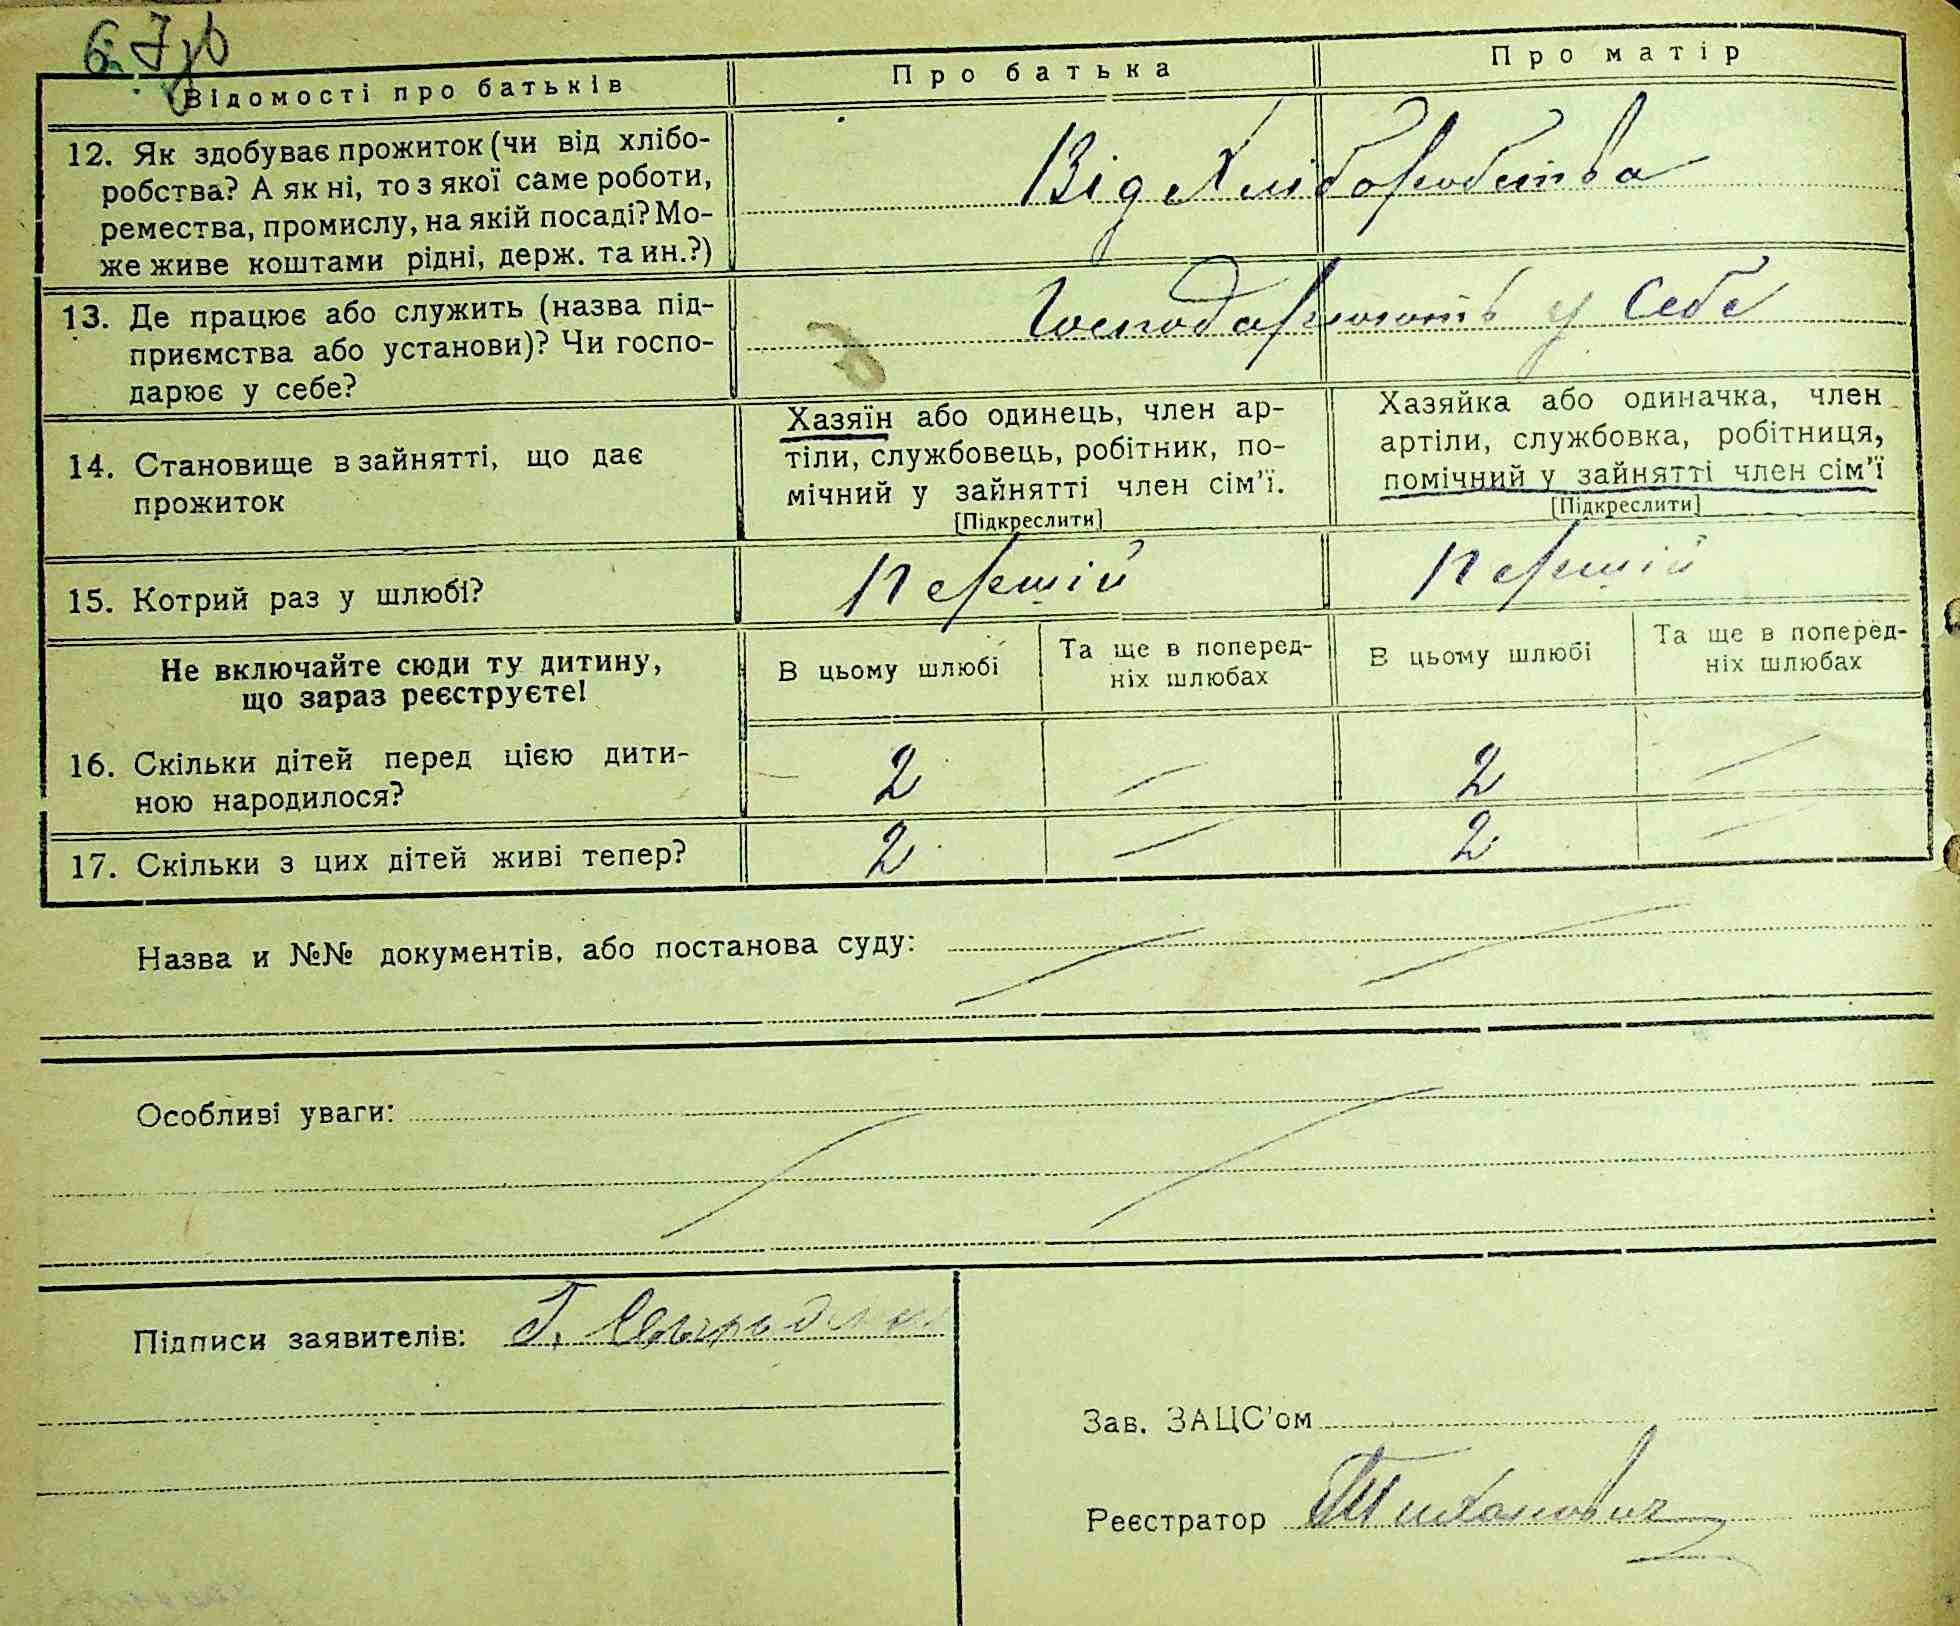 Відомості про батьків Про батька Про матір
12. Як здобуває прожиток (чи від хлібо-
робства? А як ні, то з якої саме роботи,
ремества, промислу, на якій посаді? Мо-
же живе коштами рідні, держ. та ин.?)
Від Хліборобства
13. Де працює або служить (назва під-
приємства або установи)? Чи госпо-
дарює у себе?
Господарюють у себе
14. Становище в зайнятті, що дає
прожиток
Хазяїн або одинець, член ар-
тіли, службовець, робітник, по-
мічний у зайнятті член сім'ї.
[Підкреслити]
Хазяйка або одиначка, член
артіли, службовка, робітниця,
помічний у зайнятті член сім'ї
[Підкреслити]
15. Котрий раз у шлюбі? першій першій
Не включайте сюди ту дитину,
що зараз реєструєте!
В цьому шлюбі
Та ще в поперед-
ніх шлюбах
В цьому шлюбі
Та ще в поперед-
ніх шлюбах
16. Скільки дітей перед цією дити-
ною народилося?
2 — 2 —
17. Скільки з цих дітей живі тепер? 2 — 2 —
Назва и №№ документів, або постанова суду:
Особливі уваги:
Підписи заявителів: Г.
Зав. ЗАЦС'ом
Реєстратор Тиханович